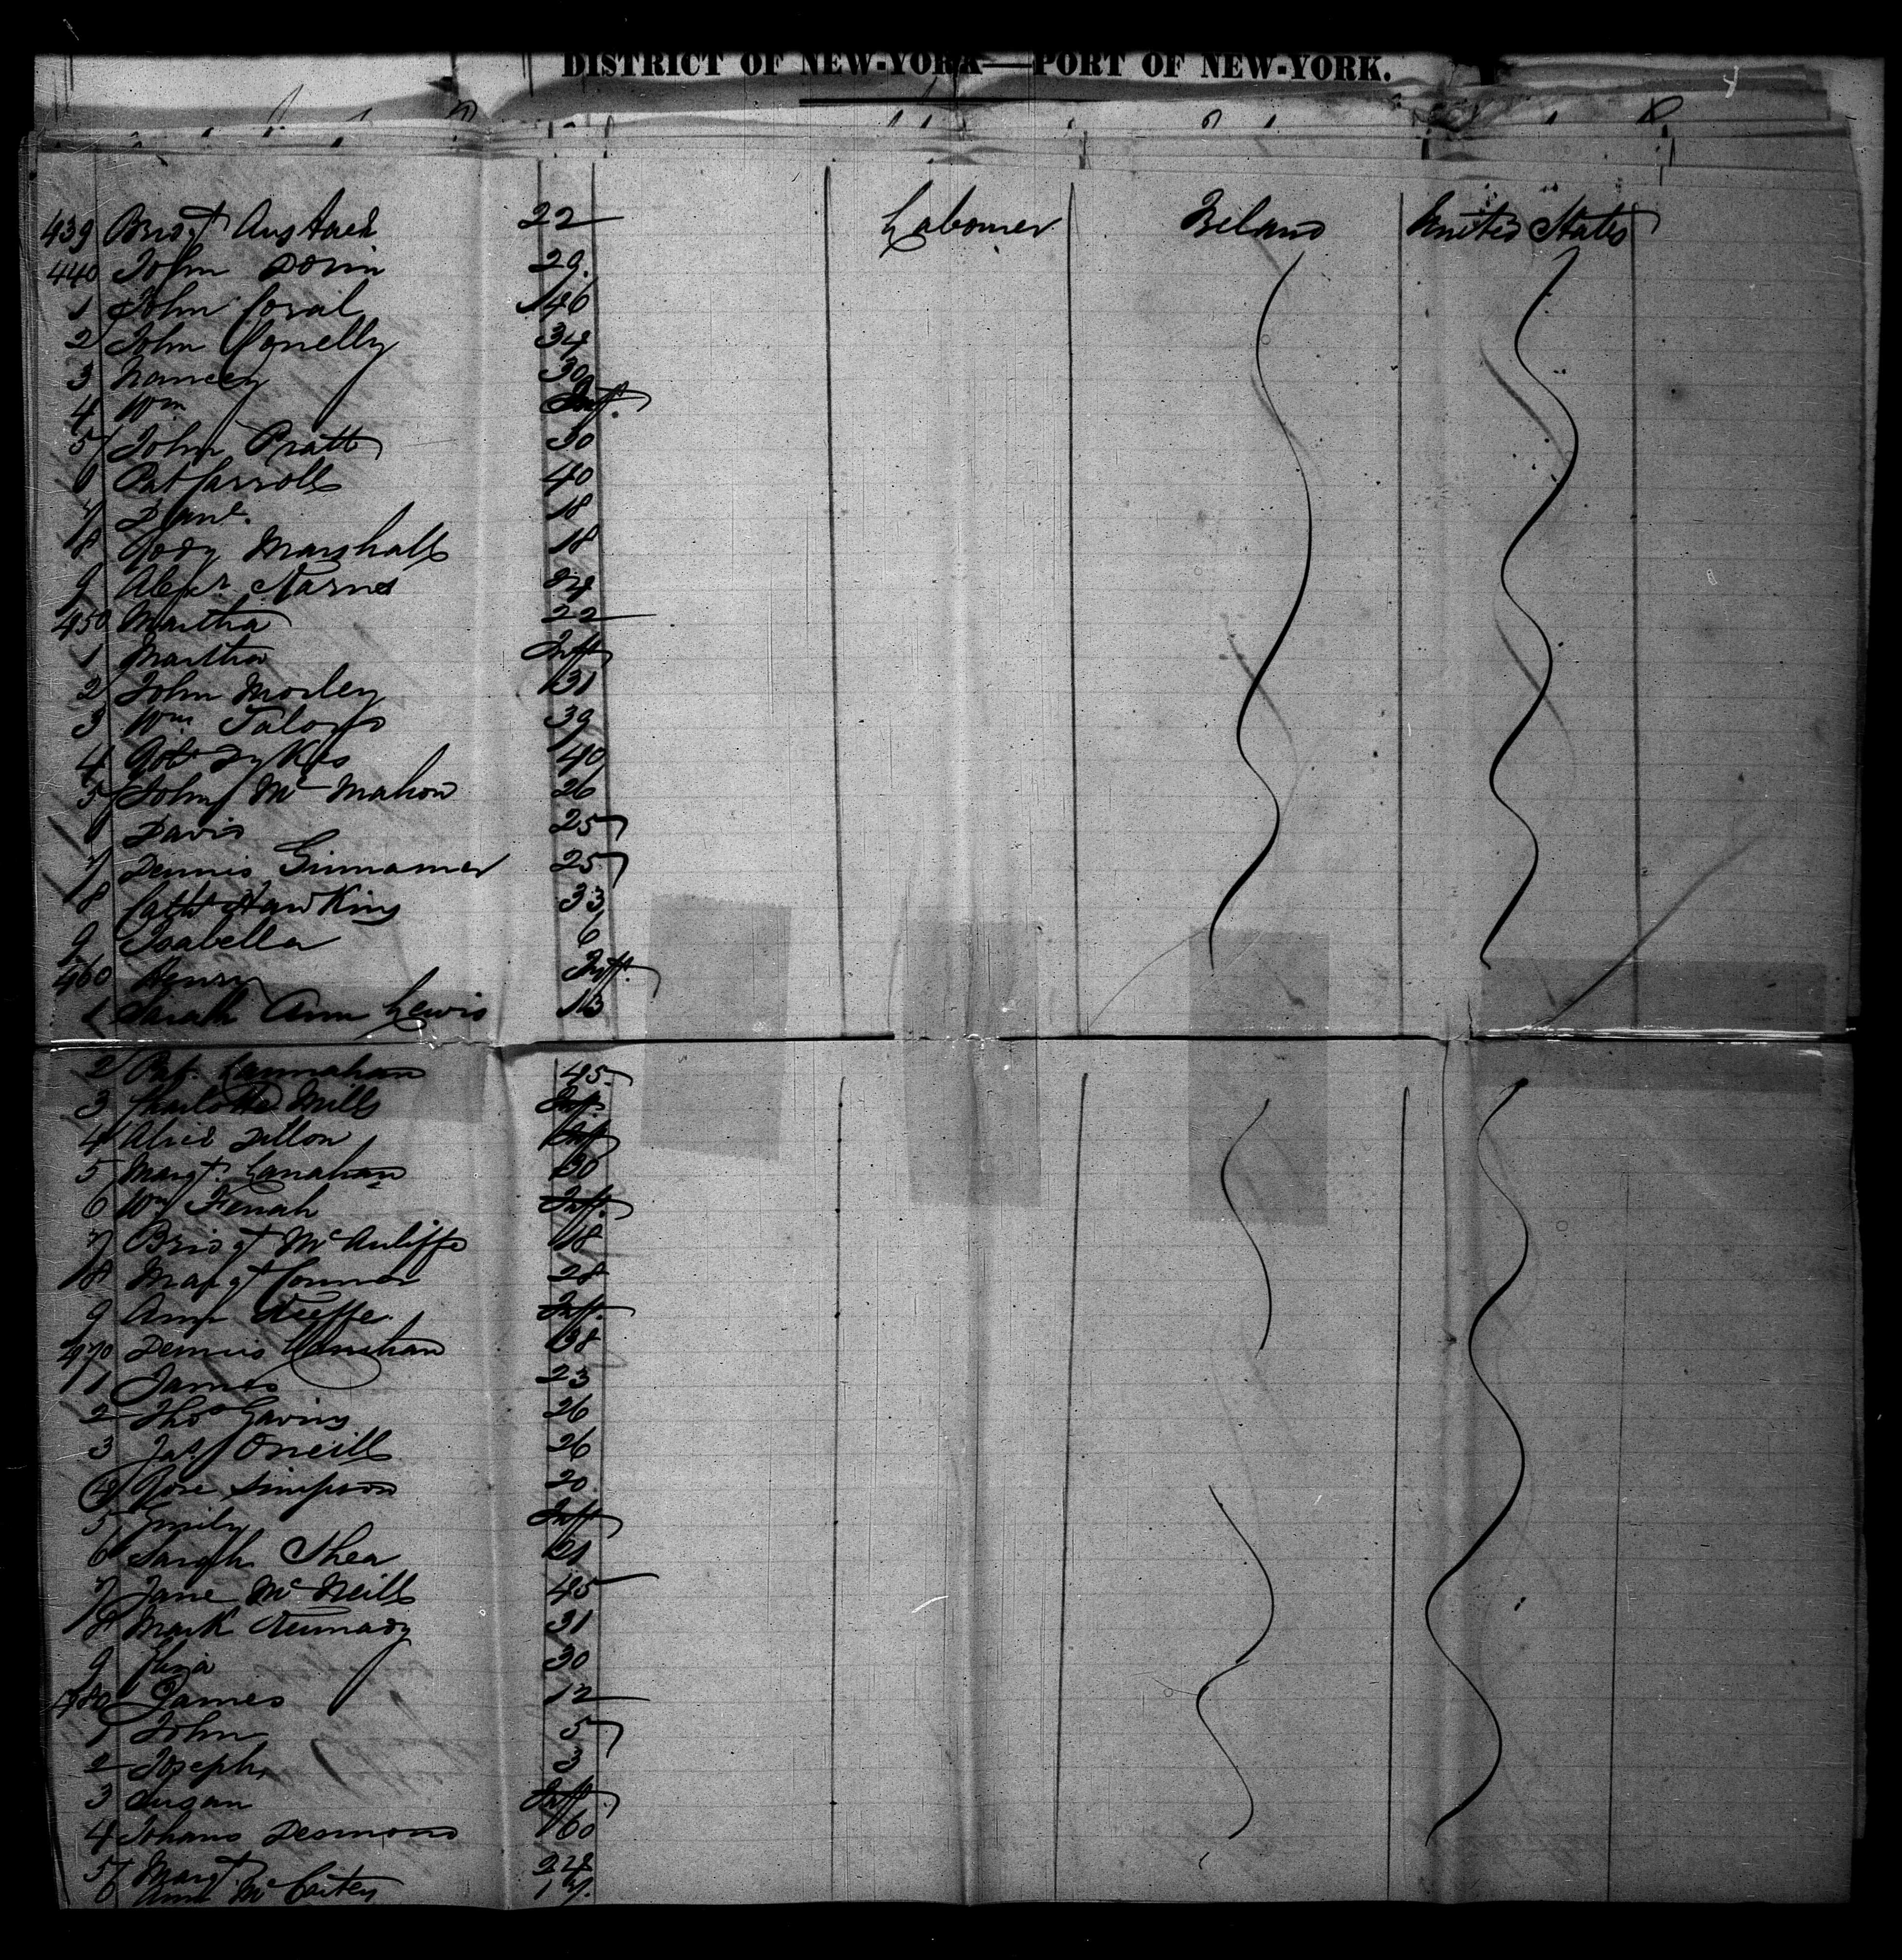 DISTRICT OF NEW-YORK—PORT OF NEW-YORK.
439 Bridgt 22 Labourer Ireland United States
440 John Dorin 29
1 John 46
2 John Conelly 34
3 Nancey 30
4 Wm Inft.
5 John Pratt 30
6 Pat Carroll 40
7 18
8 Marshall 18
9 Alexr 24
450 Martha 22
1 Martha Inft
2 John Morley 31
3 Wm 39
4 40
5 John McMahon 26
6 David 25
7 Dennis 25
8 Cath Hawkins 33
9 Isabella 6
460 Henry Inft.
1 Sarah Ann Lewis 13
2 Pat. 45
3 Charlotte Mills Inft.
4 Alice Dillon Inft
5 Margt. Canahan 30
6 Wm Inft.
7 Bridgt McAuliffe 18
8 Margt Connor 28
9 Ann Keeffe Inft.
470 Dennis 38
1 James 23
2 Thos 26
3 Jas ONeill 26
4 Rose Simpson 20
5 Emily Inft
6 Sarah Shea 21
7 Jane McNeill 45
8 Mark Kennady 31
9 Eliza 30
480 James 12
1 John 5
2 Joseph 3
3 Susan Inft.
4 Desmond 60
5 Margt 24
6 Ann McCartey